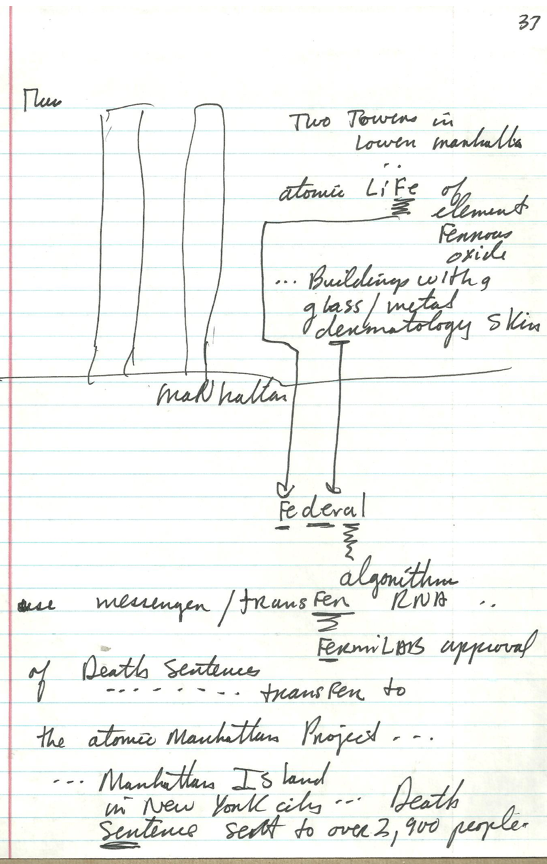 37
Thus
Two Towers in
Lower manhatta
atomic LiFe of
element
Ferrous
oxide
... Buildings with a
glass/metal
dermatology skin
maNhattan
Federal
algorithm
use messenger/transFer RNA ..
FermiLAB approval
of Death Sentences
transfer to
the atomic Manhattan Project ...
... Manhattan Island
in New York city ... Death
Sentence sent to over 2,900 people.